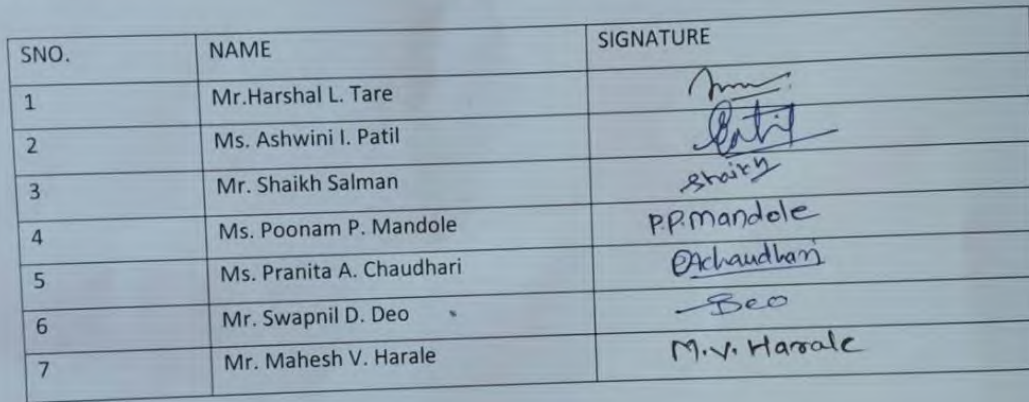 SNO. NAME SIGNATURE
1 Mr.Harshal L. Tare
2 Ms. Ashwini I. Patil Patil
3 Mr. Shaikh Salman Shaikh
4 Ms. Poonam P. Mandole P.P.Mandole
5 Ms. Pranita A. Chaudhari PAchaudhari
6 Mr. Swapnil D. Deo Deo
7 Mr. Mahesh V. Harale M.V. Harale